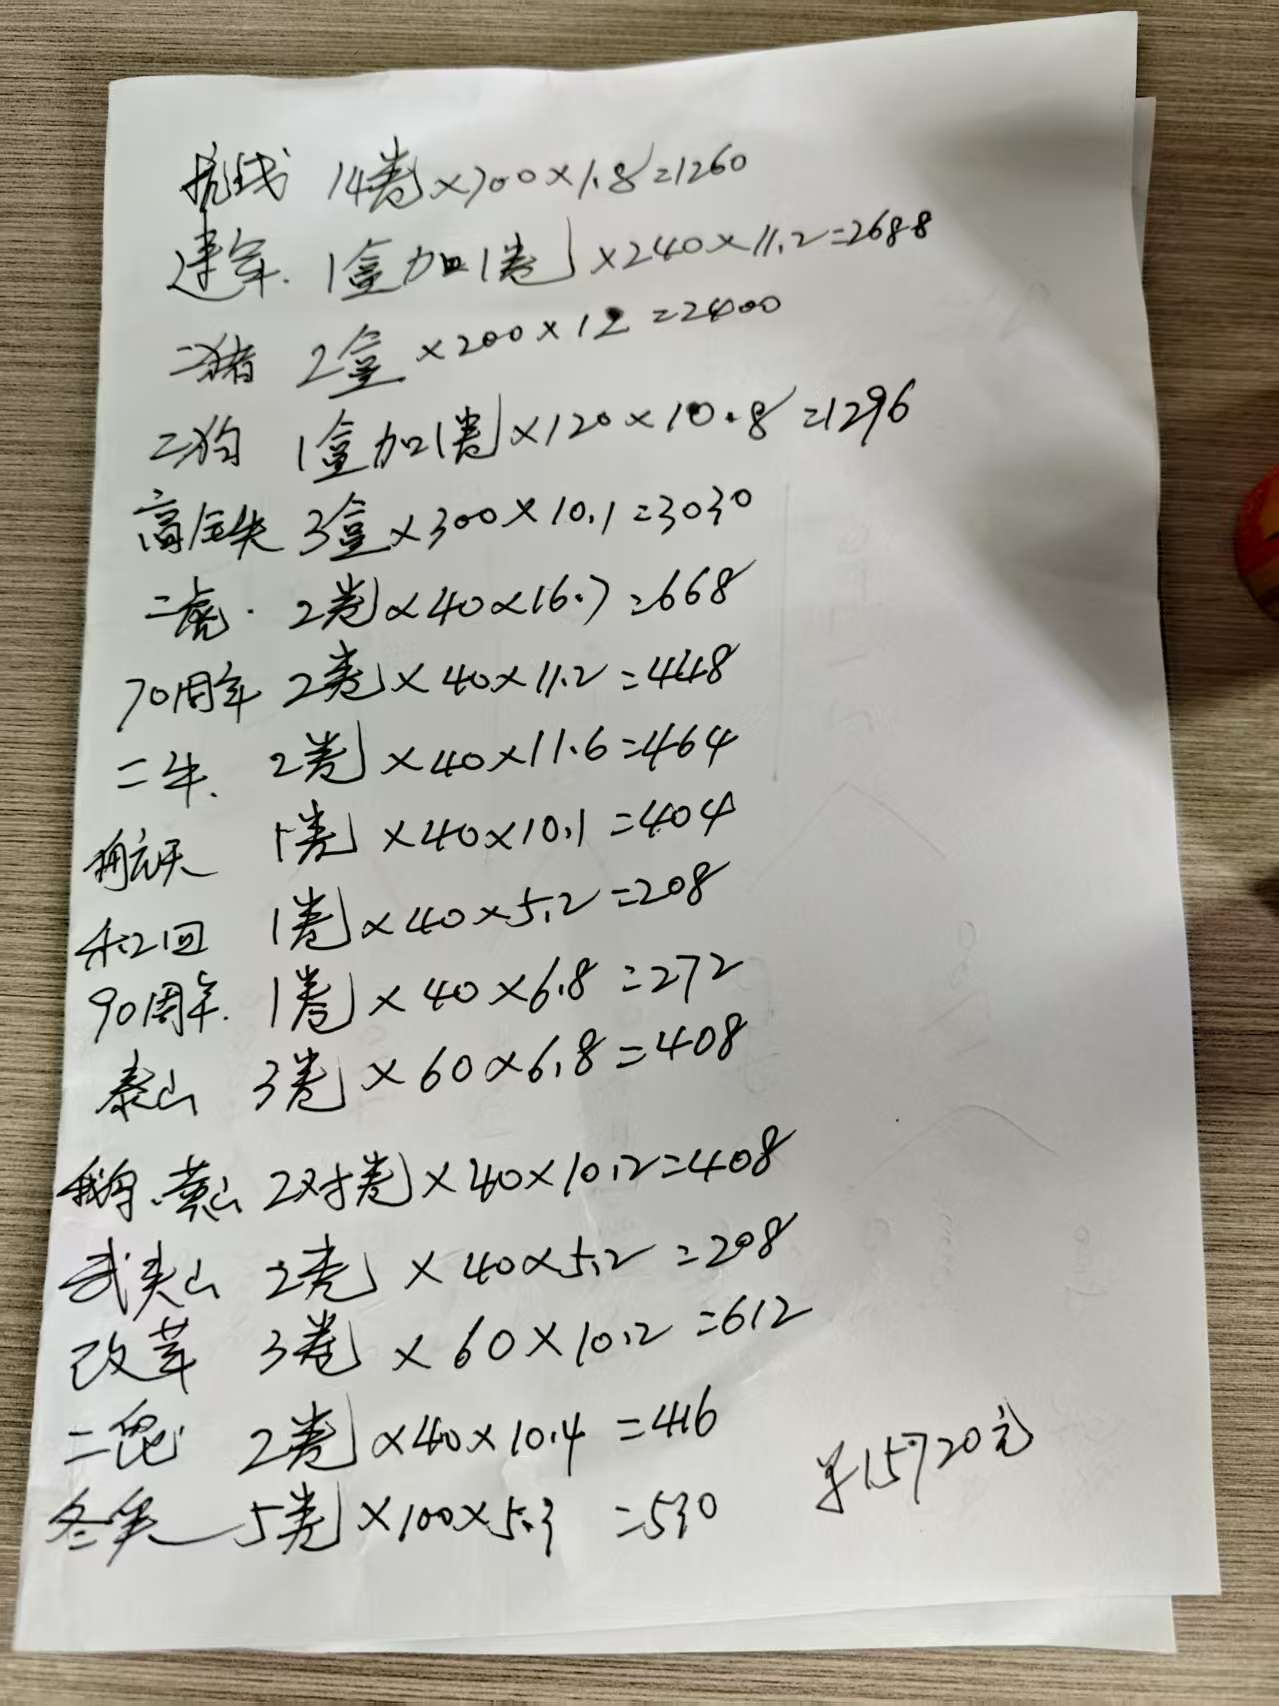 抗战 14卷×700×1.8=1260
建军. 1盒加1卷×240×11.2=2688
二猪 2盒×200×12=2400
二狗 1盒加1卷×120×10.8=1296
高铁 3盒×300×10.1=3030
二虎. 2卷×40×16.7=668
70周年 2卷×40×11.2=448
二牛. 2卷×40×11.6=464
航天 1卷×40×10.1=404
1卷×40×5.2=208
90周年. 1卷×40×6.8=272
泰山 3卷×60×6.8=408
2对卷×40×10.2=408
武夷山 2卷×40×5.2=208
改革 3卷×60×10.2=612
2卷×40×10.4=416
冬奥 5卷×100×5.3=530
15720元